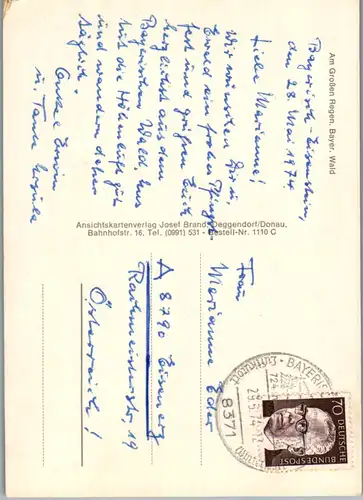 Am Großen Regen, Bayer. Wald
Bayerisch-Eisenstein,
den 28. Mai 1974
Liebe Marianne!
Wir wünschen Dir u.
Ewald ein frohes Pfingst-
fest und grüßen Euch
herzlichst aus dem
Bayrischen Wald. Uns
tut die Höhenluft gut
und wandern daher
täglich.
Onkel Erwin
u. Tante
Ansichtskartenverlag Josef Brand, Deggendorf/Donau,
Bahnhofstr. 16, Tel. (0991) 531 - Bestell-Nr. 1110 C
Frau
Marianne Eder
A 8790 Eisenerz
19
Österreich!
8371 BAYERISCH
29.5.74-12
70
DEUTSCHE
BUNDESPOST